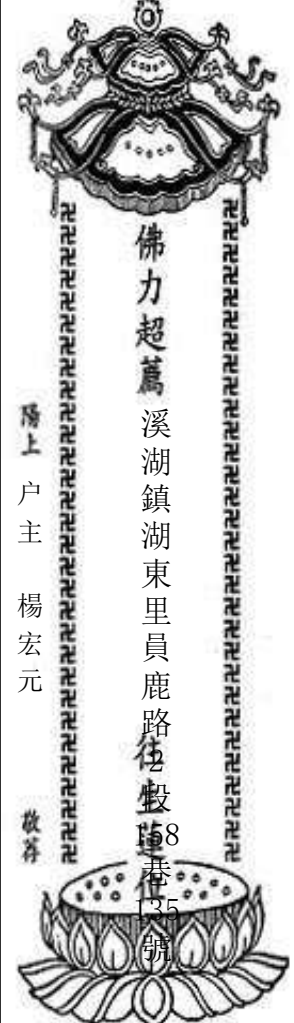 佛力超薦
溪湖鎮湖東里員鹿路2段158巷135號
往生蓮位
陽上 户主 楊宏元 敬荐